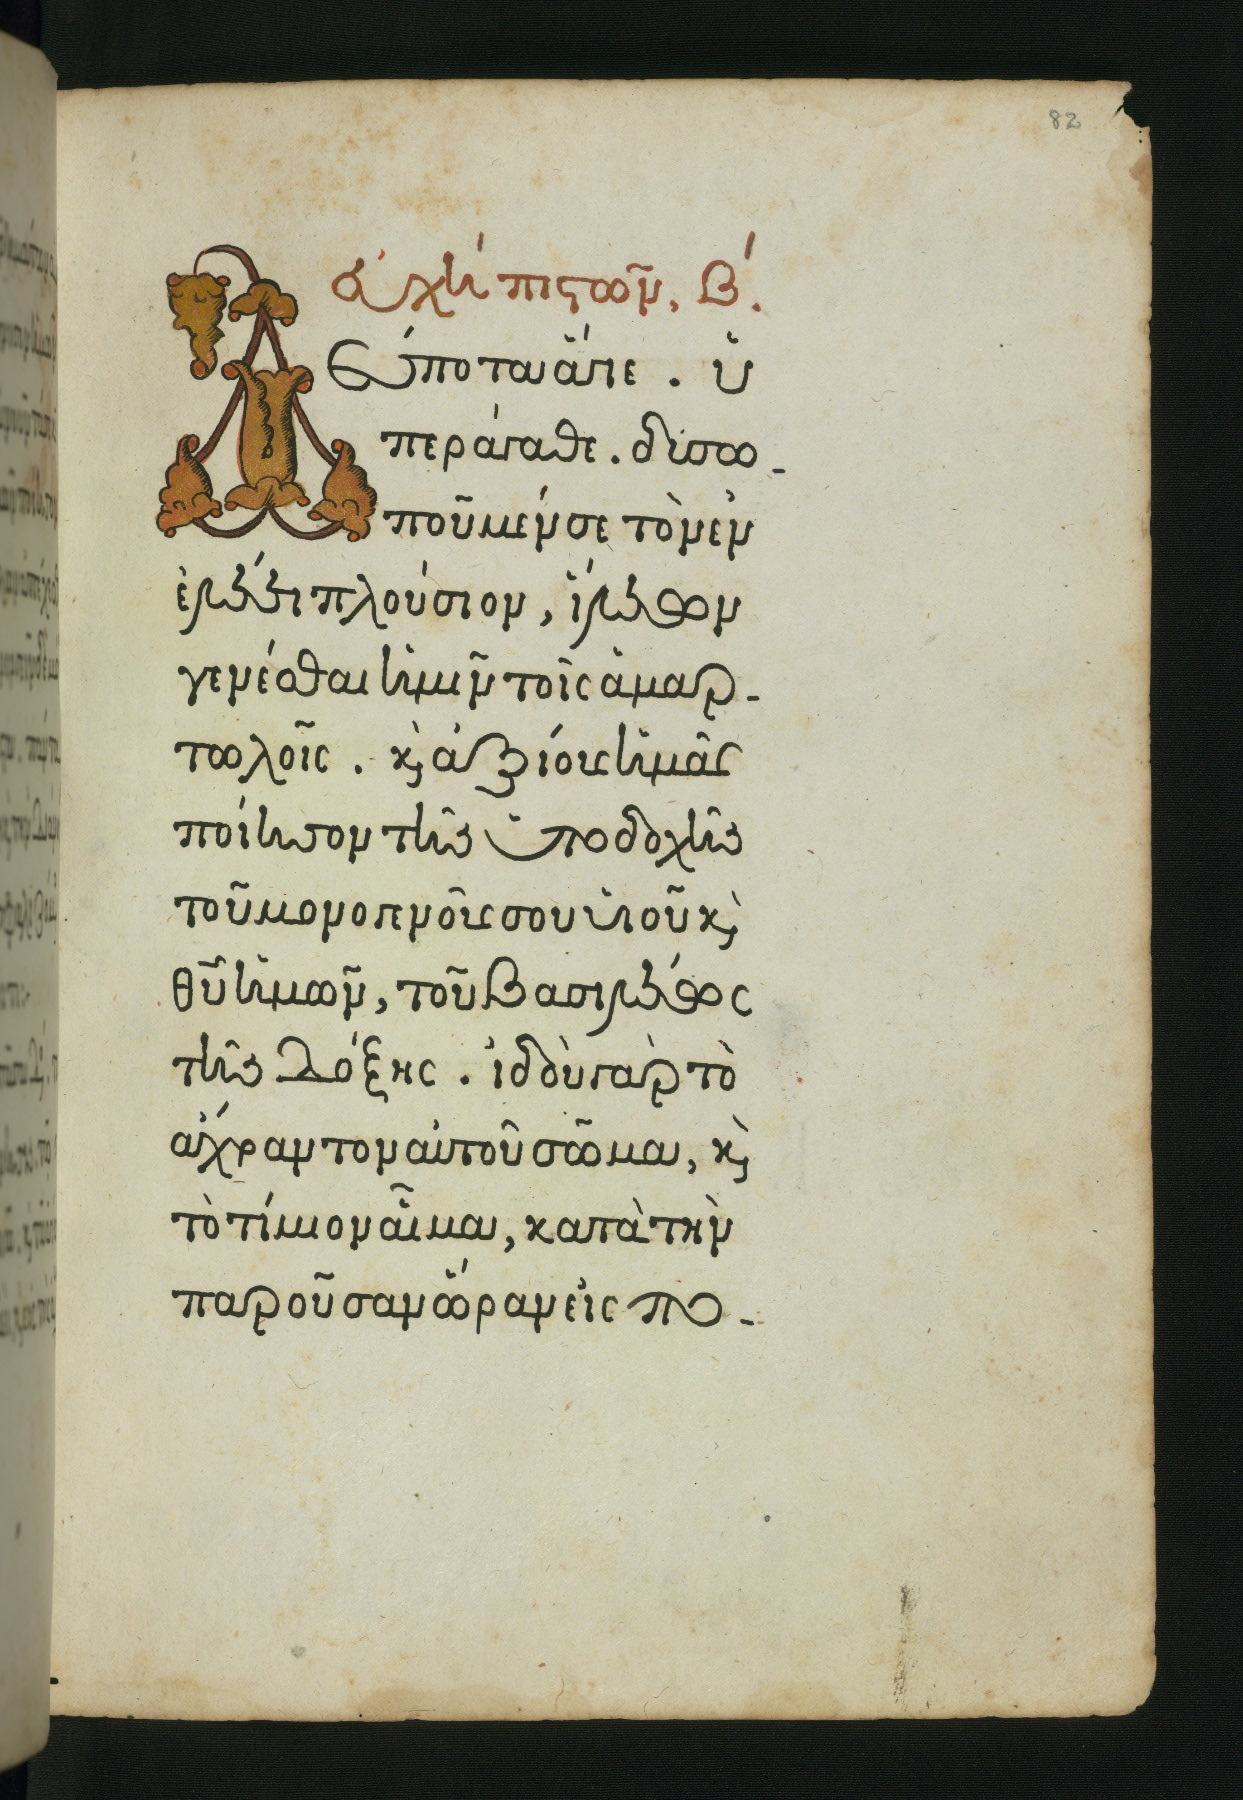 82
εὐχὴ πιστῶν, β΄.
Δέσποτα ἅγιε . ὑ
περάγαθε . δυσω-
ποῦμέν σε τὸν ἐν
ἐλέει πλούσιον, ἵλεων
γενέσθαι ἡμῖν τοῖς ἁμαρ-
τωλοῖς . κ, ἀξίους ἡμᾶς
ποίησον τῆς ὑποδοχῆς
τοῦ μονογενοῦς σου υἱοῦ κ,
θῦ ἡμῶν, τοῦ βασιλέως
τῆς δόξης . ἰδοὺ γὰρ τὸ
ἄχραντον αὐτοῦ σῶμα, κ,
τὸ τίμιον αἷμα, κατὰ τὴν
παροῦσαν ὥραν εἰσπο-